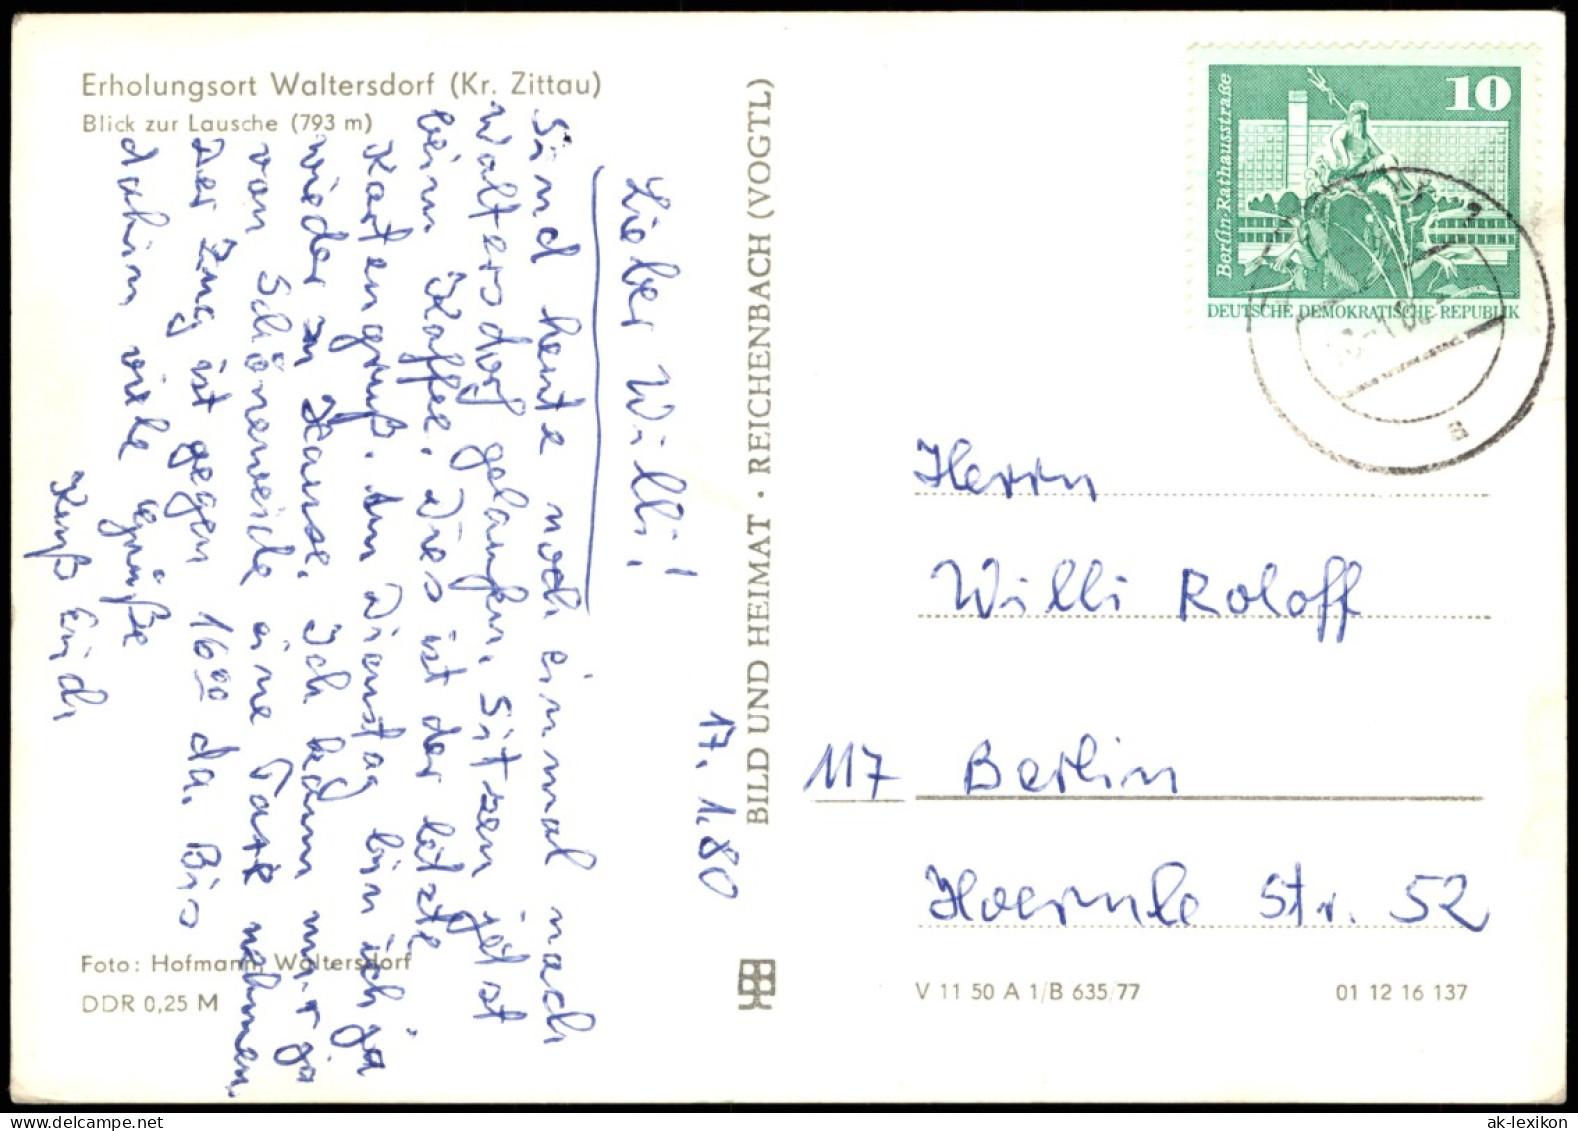 Erholungsort Waltersdorf (Kr. Zittau)
Blick zur Lausche (793 m)
17. 1. 80
Lieber Willi!
Sind heute noch einmal nach
Waltersdorf gelaufen. Sitzen jetzt
beim Kaffee. Dies ist der letzte
Kartengruß. Am Dienstag bin ich ja
wieder zu Hause. Ich kann mir ja
von Schöneweide eine Taxe nehmen.
Der Zug ist gegen 16⁰⁰ da. Bis
dahin viele Grüße
Kuß
Foto: Hofmann, Waltersdorf
DDR 0,25 M
BILD UND HEIMAT · REICHENBACH (VOGTL)
10
Berlin-Rathausstraße
DEUTSCHE DEMOKRATISCHE REPUBLIK
a
Herrn
Willi Roloff
117 Berlin
Hoernle Str. 52
V 11 50 A 1/B 635/77
01 12 16 137
ak-lexikon